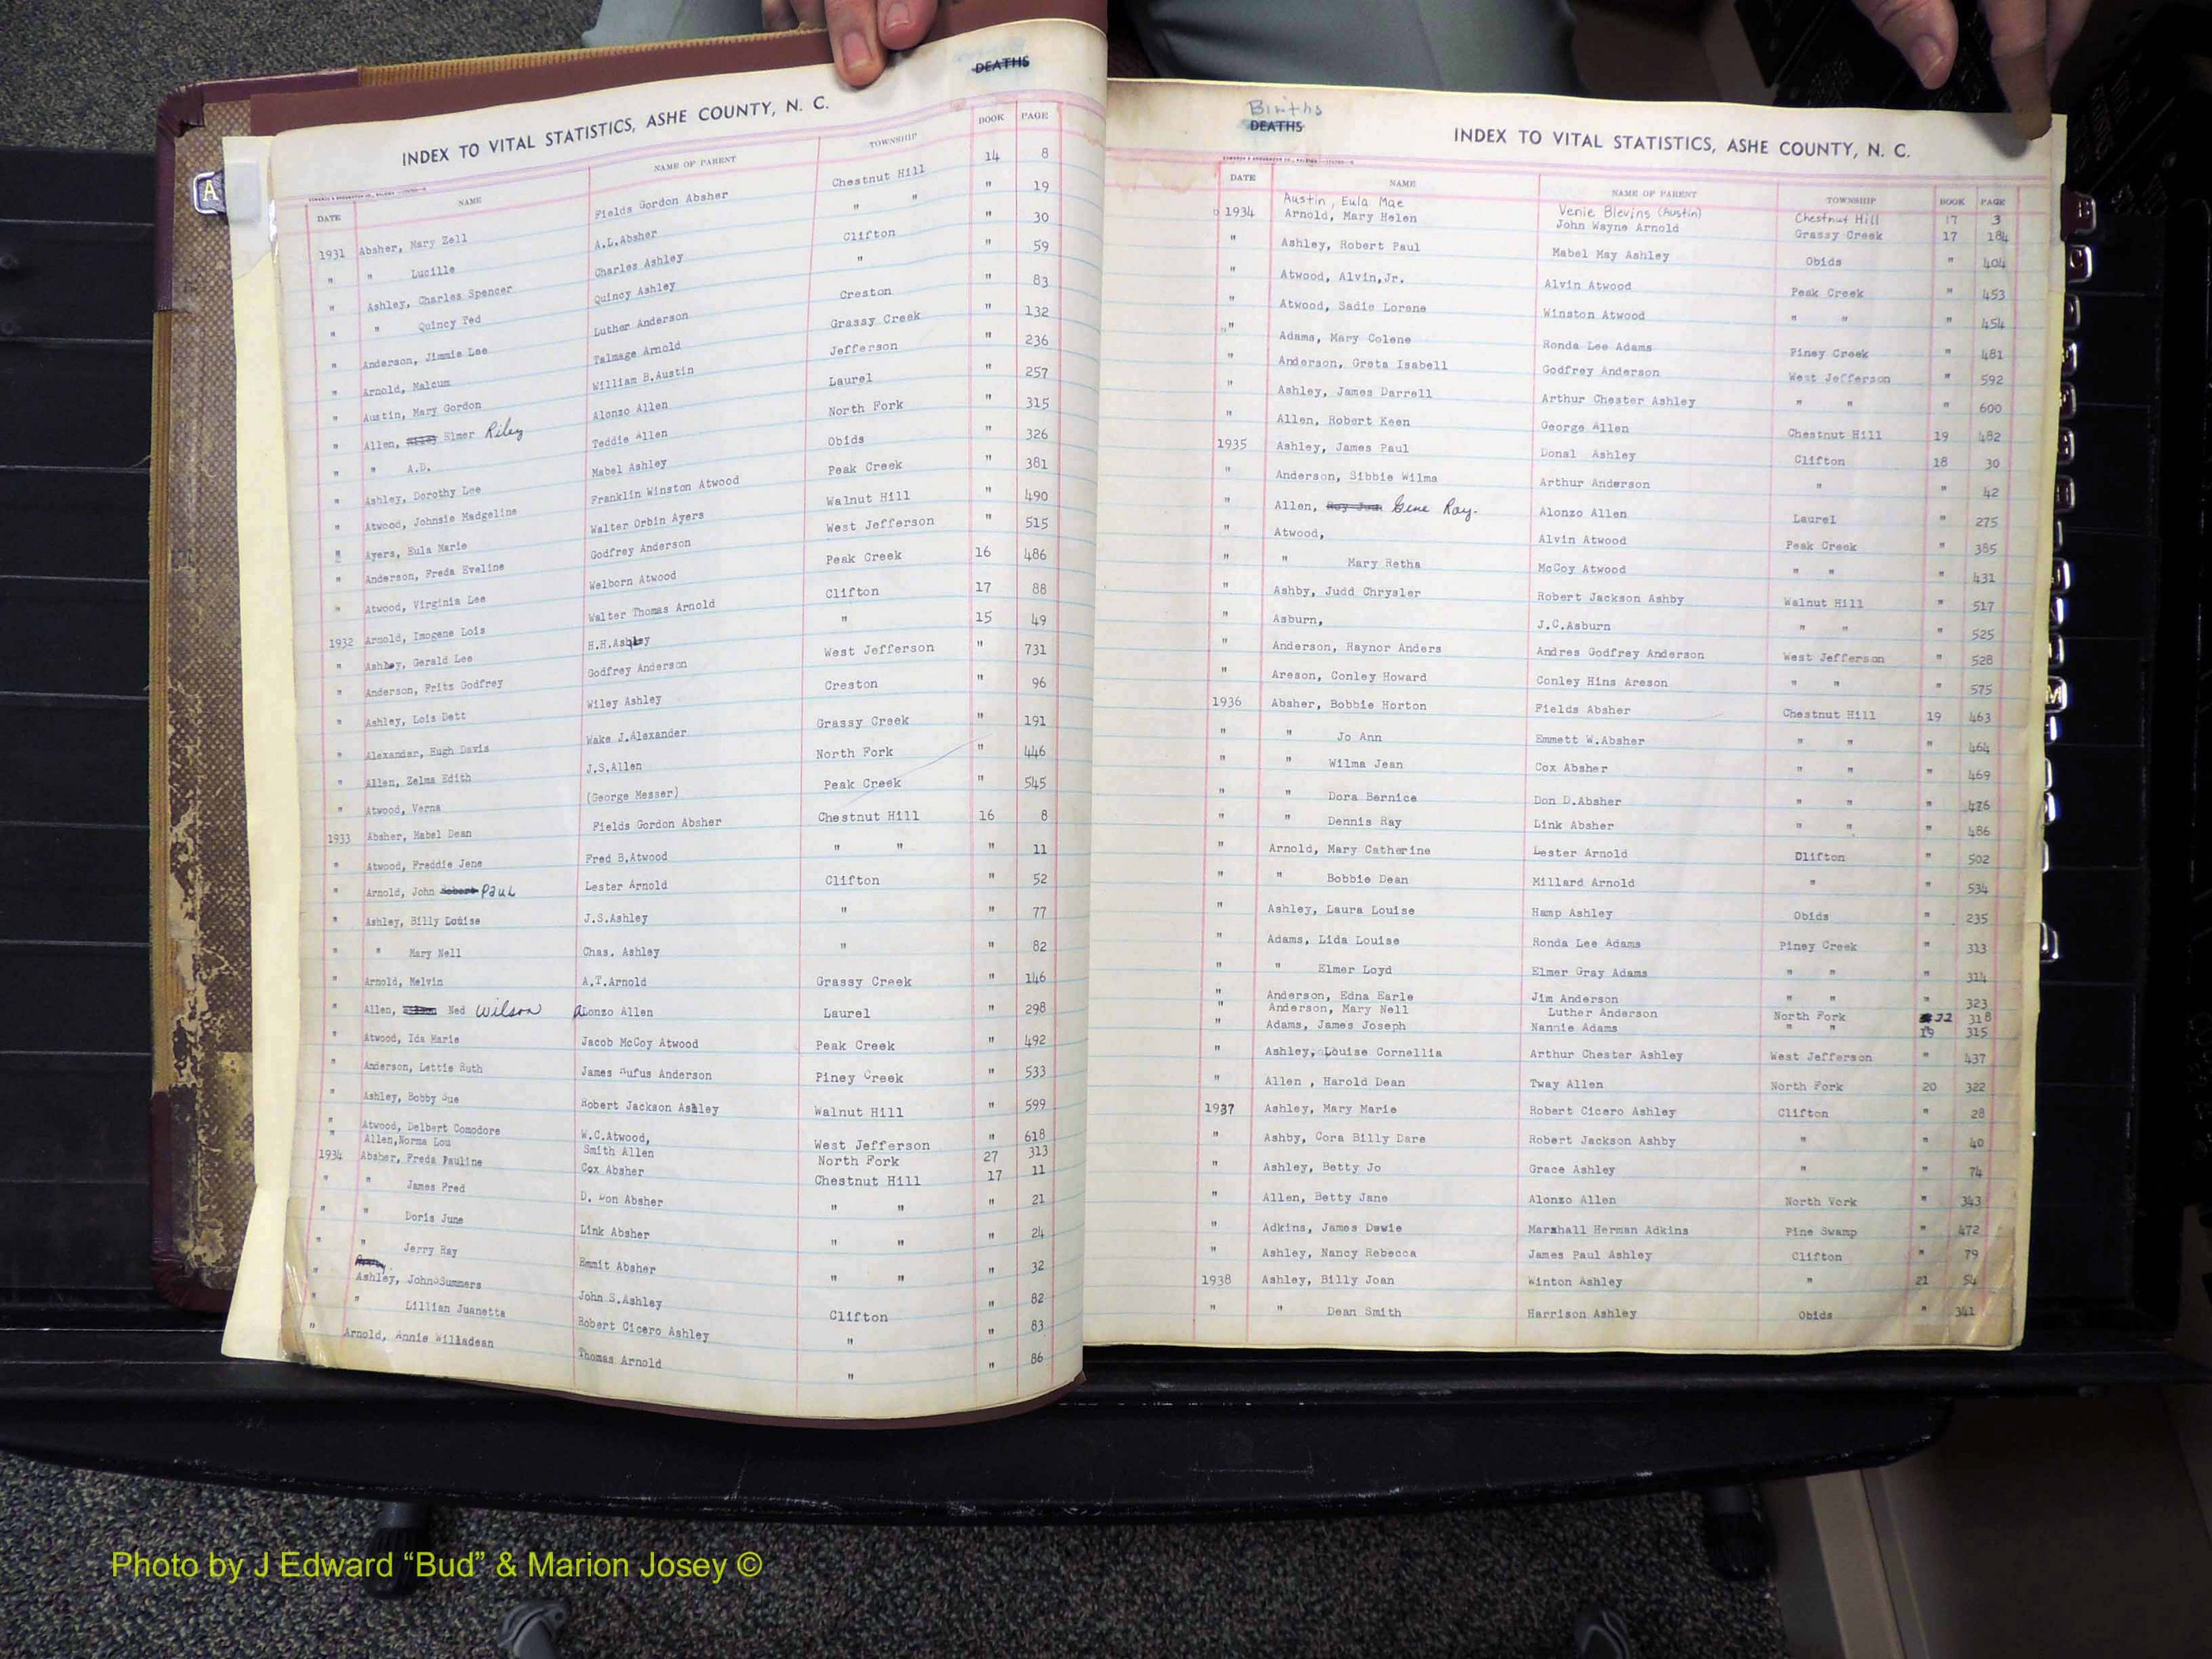 DEATHS
INDEX TO VITAL STATISTICS, ASHE COUNTY, N. C.
DATE NAME NAME OF PARENT TOWNSHIP BOOK PAGE
1931 Absher, Mary Zell Fields Gordon Absher Chestnut Hill 14 8
" " Lucille A.L.Absher " " " 19
" Ashley, Charles Spencer Charles Ashley Clifton " 30
" " Quincy Ted Quincy Ashley " " 59
" Anderson, Jimmie Lee Luther Anderson Creston " 83
" Arnold, Malcum Talmage Arnold Grassy Creek " 132
" Austin, Mary Gordon William B.Austin Jefferson " 236
" Allen, Elmer Riley Alonzo Allen Laurel " 257
" " A.D. Teddie Allen North Fork " 315
" Ashley, Dorothy Lee Mabel Ashley Obids " 326
" Atwood, Johnsie Madgeline Franklin Winston Atwood Peak Creek " 381
" Ayers, Eula Marie Walter Orbin Ayers Walnut Hill " 490
" Anderson, Freda Eveline Godfrey Anderson West Jefferson " 515
" Atwood, Virginia Lee Welborn Atwood Peak Creek 16 486
1932 Arnold, Imogene Lois Walter Thomas Arnold Clifton 17 88
" Ashley, Gerald Lee H.H.Ashley " 15 49
" Anderson, Fritz Godfrey Godfrey Anderson West Jefferson " 731
" Ashley, Lois Dett Wiley Ashley Creston " 96
" Alexander, Hugh Davis Wake J.Alexander Grassy Creek " 191
" Allen, Zelma Edith J.S.Allen North Fork " 446
" Atwood, Verna (George Messer) Peak Creek " 545
1933 Absher, Mabel Dean Fields Gordon Absher Chestnut Hill 16 8
" Atwood, Freddie Jene Fred B.Atwood " " " 11
" Arnold, John Robert Paul Lester Arnold Clifton " 52
" Ashley, Billy Louise J.S.Ashley " " 77
" " Mary Nell Chas. Ashley " " 82
" Arnold, Melvin A.T.Arnold Grassy Creek " 146
" Allen, Ned Wilson Alonzo Allen Laurel " 298
" Atwood, Ida Marie Jacob McCoy Atwood Peak Creek " 492
" Anderson, Lettie Ruth James Rufus Anderson Piney Creek " 533
" Ashley, Bobby Sue Robert Jackson Ashley Walnut Hill " 599
" Atwood, Delbert Comodore W.C.Atwood, West Jefferson " 618
" Allen,Norma Lou Smith Allen North Fork 27 313
1934 Absher, Freda Pauline Cox Absher Chestnut Hill 17 11
" " James Fred D. Don Absher " " " 21
" " Doris June Link Absher " " " 24
" " Jerry Ray Emmit Absher " " " 32
" Ashley, John Summers John S.Ashley Clifton " 82
" " Lillian Juanetta Robert Cicero Ashley " " 83
" Arnold, Annie Willadean Thomas Arnold " " 86
Births
DEATHS
INDEX TO VITAL STATISTICS, ASHE COUNTY, N. C.
DATE NAME NAME OF PARENT TOWNSHIP BOOK PAGE
Austin, Eula Mae Venie Blevins (Austin) Chestnut Hill 17 3
1934 Arnold, Mary Helen John Wayne Arnold Grassy Creek 17 184
" Ashley, Robert Paul Mabel May Ashley Obids " 404
" Atwood, Alvin,Jr. Alvin Atwood Peak Creek " 453
" Atwood, Sadie Lorene Winston Atwood " " " 454
" Adams, Mary Colene Ronda Lee Adams Piney Creek " 481
" Anderson, Greta Isabell Godfrey Anderson West Jefferson " 592
" Ashley, James Darrell Arthur Chester Ashley " " " 600
" Allen, Robert Keen George Allen Chestnut Hill 19 482
1935 Ashley, James Paul Donal Ashley Clifton 18 30
" Anderson, Sibbie Wilma Arthur Anderson " " 42
" Allen, Gene Ray. Alonzo Allen Laurel " 275
" Atwood, Alvin Atwood Peak Creek " 385
" " Mary Retha McCoy Atwood " " " 431
" Ashby, Judd Chrysler Robert Jackson Ashby Walnut Hill " 517
" Asburn, J.C.Asburn " " " 525
" Anderson, Raynor Anders Andres Godfrey Anderson West Jefferson " 528
" Areson, Conley Howard Conley Hins Areson " " " 575
1936 Absher, Bobbie Horton Fields Absher Chestnut Hill 19 463
" " Jo Ann Emmett W.Absher " " " 464
" " Wilma Jean Cox Absher " " " 469
" " Dora Bernice Don D.Absher " " " 476
" " Dennis Ray Link Absher " " " 486
" Arnold, Mary Catherine Lester Arnold Clifton " 502
" " Bobbie Dean Millard Arnold " " 534
" Ashley, Laura Louise Hamp Ashley Obids " 235
" Adams, Lida Louise Ronda Lee Adams Piney Creek " 313
" " Elmer Loyd Elmer Gray Adams " " " 314
" Anderson, Edna Earle Jim Anderson " " " 323
" Anderson, Mary Nell Luther Anderson North Fork 32 318
" Adams, James Joseph Nannie Adams " " 19 315
" Ashley, Louise Cornellia Arthur Chester Ashley West Jefferson " 437
" Allen , Harold Dean Tway Allen North Fork 20 322
1937 Ashley, Mary Marie Robert Cicero Ashley Clifton " 28
" Ashby, Cora Billy Dare Robert Jackson Ashby " " 40
" Ashley, Betty Jo Grace Ashley " " 74
" Allen, Betty Jane Alonzo Allen North Vork " 343
" Adkins, James Dewie Marshall Herman Adkins Pine Swamp " 472
" Ashley, Nancy Rebecca James Paul Ashley Clifton " 79
1938 Ashley, Billy Joan Winton Ashley " 21 54
" " Dean Smith Harrison Ashley Obids " 341
A
B
C
M
Photo by J Edward “Bud” & Marion Josey ©